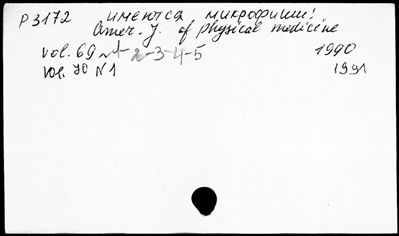 P 3172 имеются микрофиши!
Amer. J. of physical medicine
vol. 69 N 1-2-3-4-5 1990
vol. 70 N 1 1991